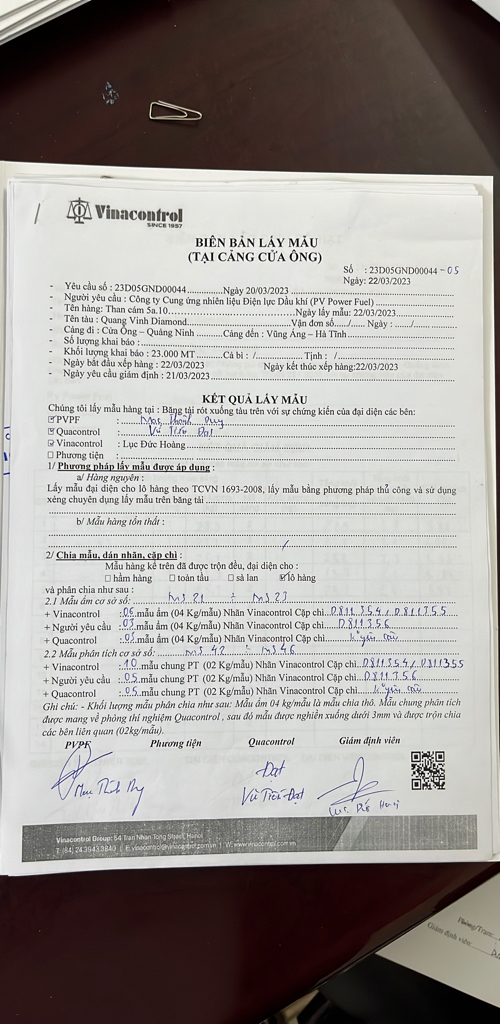 Vinacontrol
SINCE 1957
BIÊN BẢN LẤY MẪU
(TẠI CẢNG CỬA ÔNG)
Số : 23D05GND00044 - 05
Ngày: 22/03/2023
- Yêu cầu số : 23D05GND00044...........Ngày 20/03/2023
- Người yêu cầu : Công ty Cung ứng nhiên liệu Điện lực Dầu khí (PV Power Fuel)
- Tên hàng: Than cám 5a.10............Ngày lấy mẫu: 22/03/2023
- Tên tàu : Quang Vinh Diamond............Vận đơn số...../..... Ngày : ...../......
- Cảng đi : Cửa Ông – Quảng Ninh ..........Cảng đến : Vũng Áng – Hà Tĩnh
- Số lượng khai báo :
- Khối lượng khai báo : 23.000 MT..........Cả bì : /..........Tịnh : /
- Ngày bắt đầu xếp hàng : 22/03/2023 Ngày kết thúc xếp hàng:22/03/2023
- Ngày yêu cầu giám định : 21/03/2023
KẾT QUẢ LẤY MẪU
Chúng tôi lấy mẫu hàng tại : Băng tải rót xuống tàu trên với sự chứng kiến của đại diện các bên:
☑PVPF :
☑ Quacontrol : Vũ Tiến Đạt
☑ Vinacontrol : Lục Đức Hoàng
☐ Phương tiện :
1/ Phương pháp lấy mẫu được áp dụng :
a/ Hàng nguyên :
Lấy mẫu đại diện cho lô hàng theo TCVN 1693-2008, lấy mẫu bằng phương pháp thủ công và sử dụng
xẻng chuyên dụng lấy mẫu trên băng tải
b/ Mẫu hàng tổn thất :
/
2/ Chia mẫu, dán nhãn, cặp chì :
Mẫu hàng kể trên đã được trộn đều, đại diện cho :
☐ hầm hàng ☐ toàn tàu ☐ sà lan ☑lô hàng
và phân chia như sau :
2.1 Mẫu ẩm cơ sở số: MS 21 ÷ MS 23
+ Vinacontrol :.06 mẫu ẩm (04 Kg/mẫu) Nhãn Vinacontrol Cặp chì D811354 / D811355
+ Người yêu cầu :.03 mẫu ẩm (04 Kg/mẫu) Nhãn Vinacontrol Cặp chì D811356
+ Quacontrol :.03 mẫu ẩm (04 Kg/mẫu) Nhãn Vinacontrol Cặp chì
2.2 Mẫu phân tích cơ sở số: MS 42 ÷ MS 46
+ Vinacontrol :.10 mẫu chung PT (02 Kg/mẫu) Nhãn Vinacontrol Cặp chì D811354 / D811355
+ Người yêu cầu :.05 mẫu chung PT (02 Kg/mẫu) Nhãn Vinacontrol Cặp chì D811356
+ Quacontrol :.05 mẫu chung PT (02 Kg/mẫu) Nhãn Vinacontrol Cặp chì
Ghi chú: - Khối lượng mẫu phân chia như sau: Mẫu ẩm 04 kg/mẫu là mẫu chia thô. Mẫu chung phân tích
được mang về phòng thí nghiệm Quacontrol , sau đó mẫu được nghiền xuống dưới 3mm và được trộn chia
các bên liên quan (02kg/mẫu).
PVPF Phương tiện Quacontrol Giám định viên
Đạt
Vũ Tiến Đạt
Lục Đức Hoàng
Vinacontrol Group: 54 Tran Nhan Tong Street, Hanoi
T: (84) 24.3943.3840 | E: vinacontrol@vinacontrol.com.vn | W: www.vinacontrol.com.vn
Phòng/Trạm:
Giám định viên: